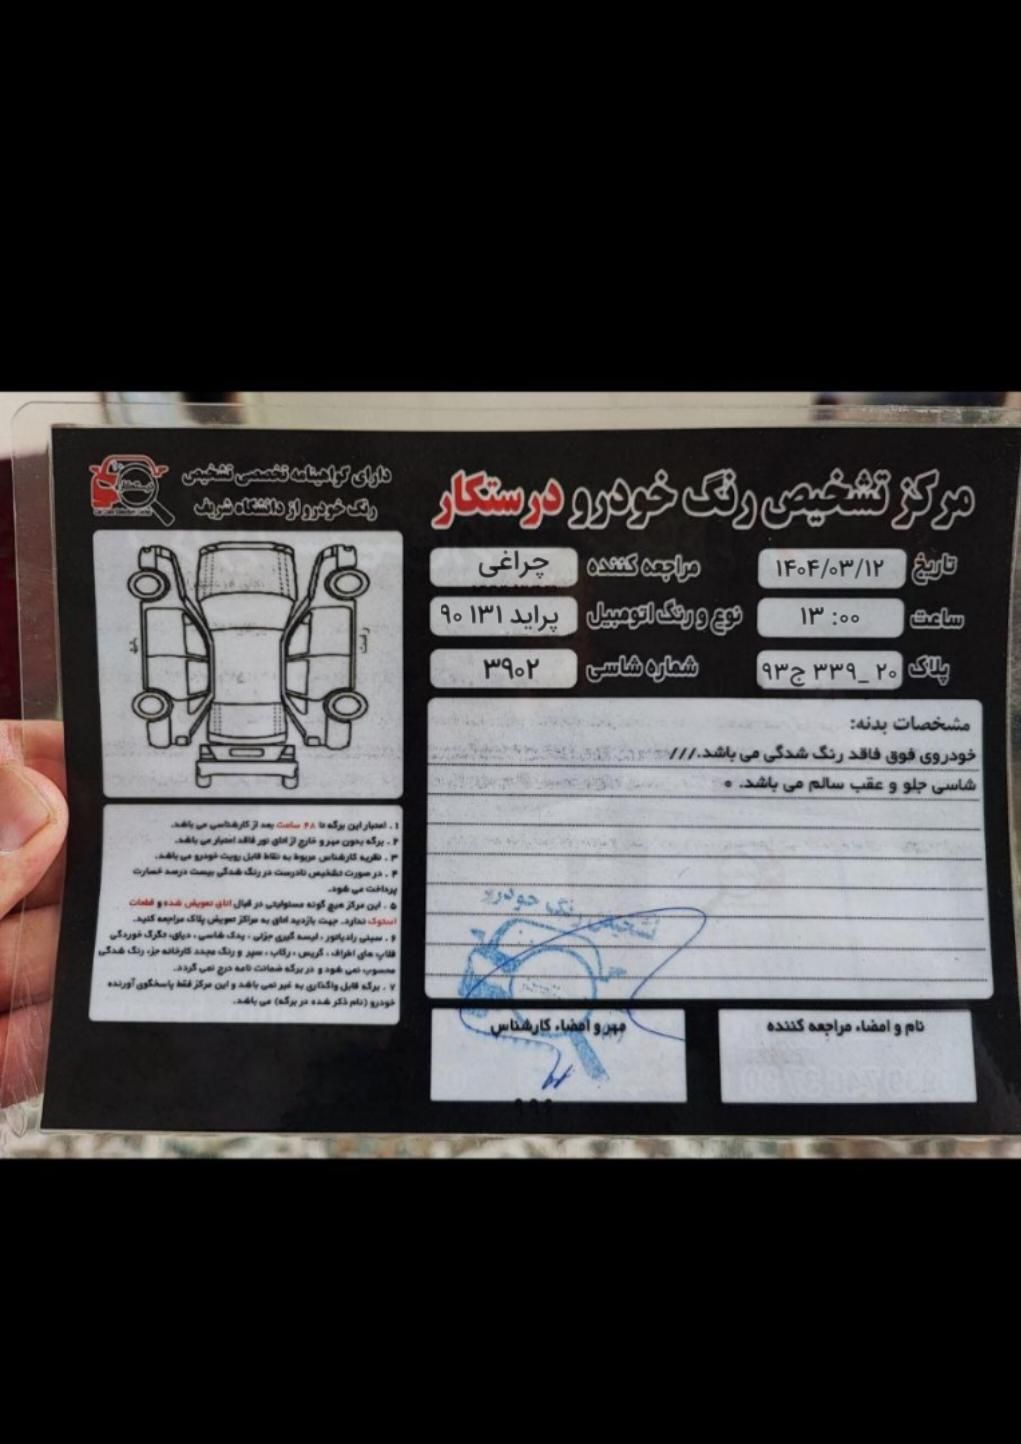 مرکز تشخیص رنگ خودرو درستکار
دارای گواهینامه تخصصی تشخیص
رنگ خودرو از دانشگاه شریف
تاریخ ۱۴۰۴/۰۳/۱۲ مراجعه کننده چراغی
ساعت ۱۳ :۰۰ نوع و رنگ اتومبیل پراید ۱۳۱ ۹۰
پلاک ۲۰ _۳۳۹ ج۹۳ شماره شاسی ۳۹۰۲
مشخصات بدنه:
خودروی فوق فاقد رنگ شدگی می باشد.///
شاسی جلو و عقب سالم می باشد. ۰
تشخیص رنگ خودرو
نام و امضاء مراجعه کننده
مهر و امضاء کارشناس
راست
۱ . اعتبار این برگه تا ۴۸ ساعت بعد از کارشناسی می باشد.
۲ . برگه بدون مهر و خارج از اتاق نور فاقد اعتبار می باشد.
۳ . نظریه کارشناس مربوط به نقاط قابل رویت خودرو می باشد.
۴ . در صورت تشخیص نادرست در رنگ شدگی بیست درصد خسارت
پرداخت می شود.
۵ . این مرکز هیچ گونه مسئولیتی در قبال اتاق تعویض شده و قطعات
استوک ندارد. جهت بازدید اتاق به مراکز تعویض پلاک مراجعه کنید.
۶ . سینی رادیاتور ، لیسه گیری جزئی ، یدک شاسی ، دیاق، تگرگ خوردگی
قلاب های اطراف ، گریس ، رکاب ، سپر و رنگ مجدد کارخانه جزء رنگ شدگی
محسوب نمی شود و در برگه ضمانت نامه درج نمی گردد.
۷ . برگه قابل واگذاری به غیر نمی باشد و این مرکز فقط پاسخگوی آورنده
خودرو (نام ذکر شده در برگه) می باشد.